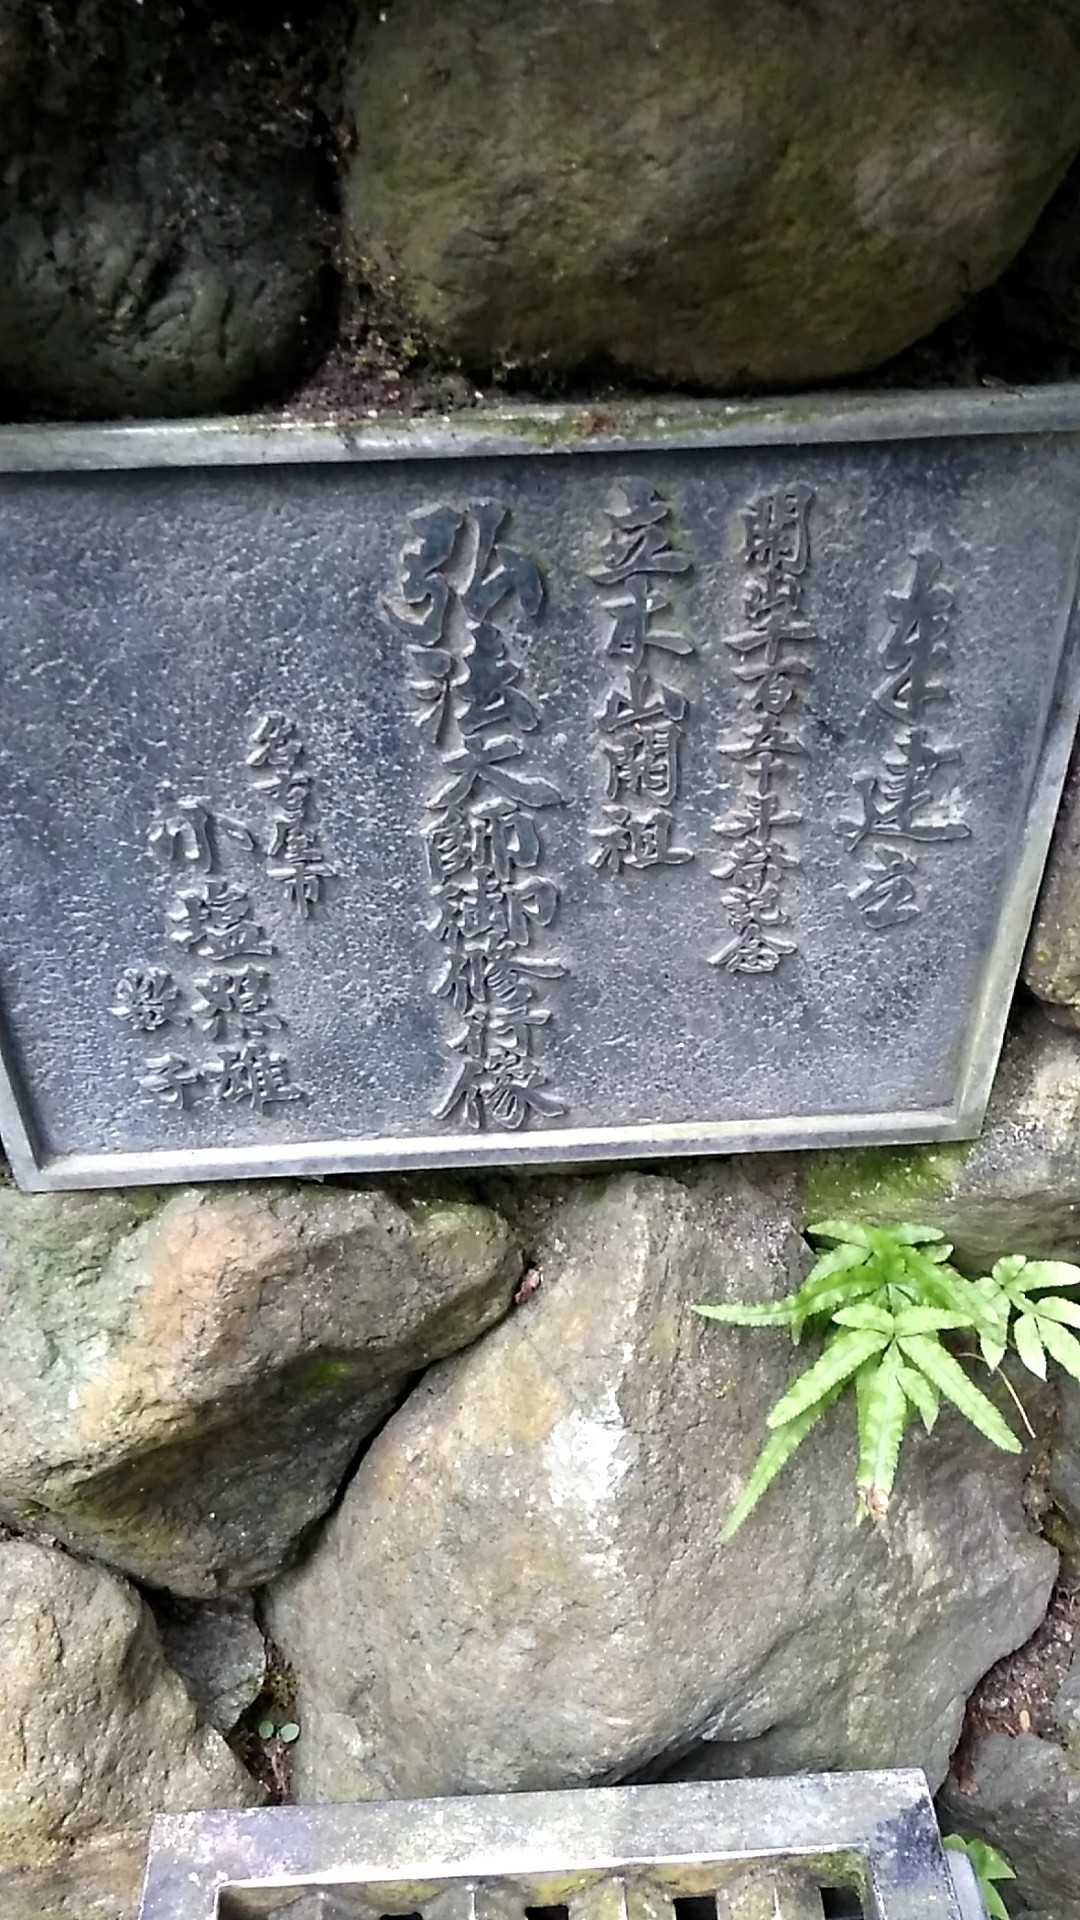 奉建立
開山千百五十年祭記念
立木山開祖
弘法大師御修行像
名古屋市
小塩照雄
繁子